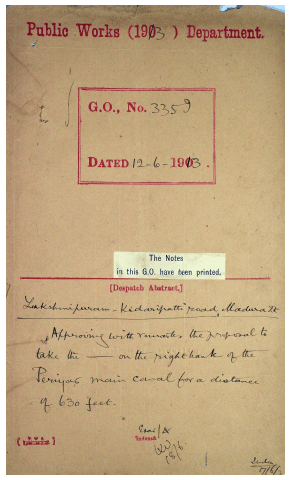 Public Works (1913) Department.
G.O., No. 3359
DATED 12-6-1913.
The Notes
in this G.O. have been printed.
[Despatch Abstract.]
Lakshmipuram - Kidaripatti road, Madura Dt
Approving with remarks the proposal to
take the — on the right bank of the
Periyar main canal for a distance
of 630 feet.
Indexed